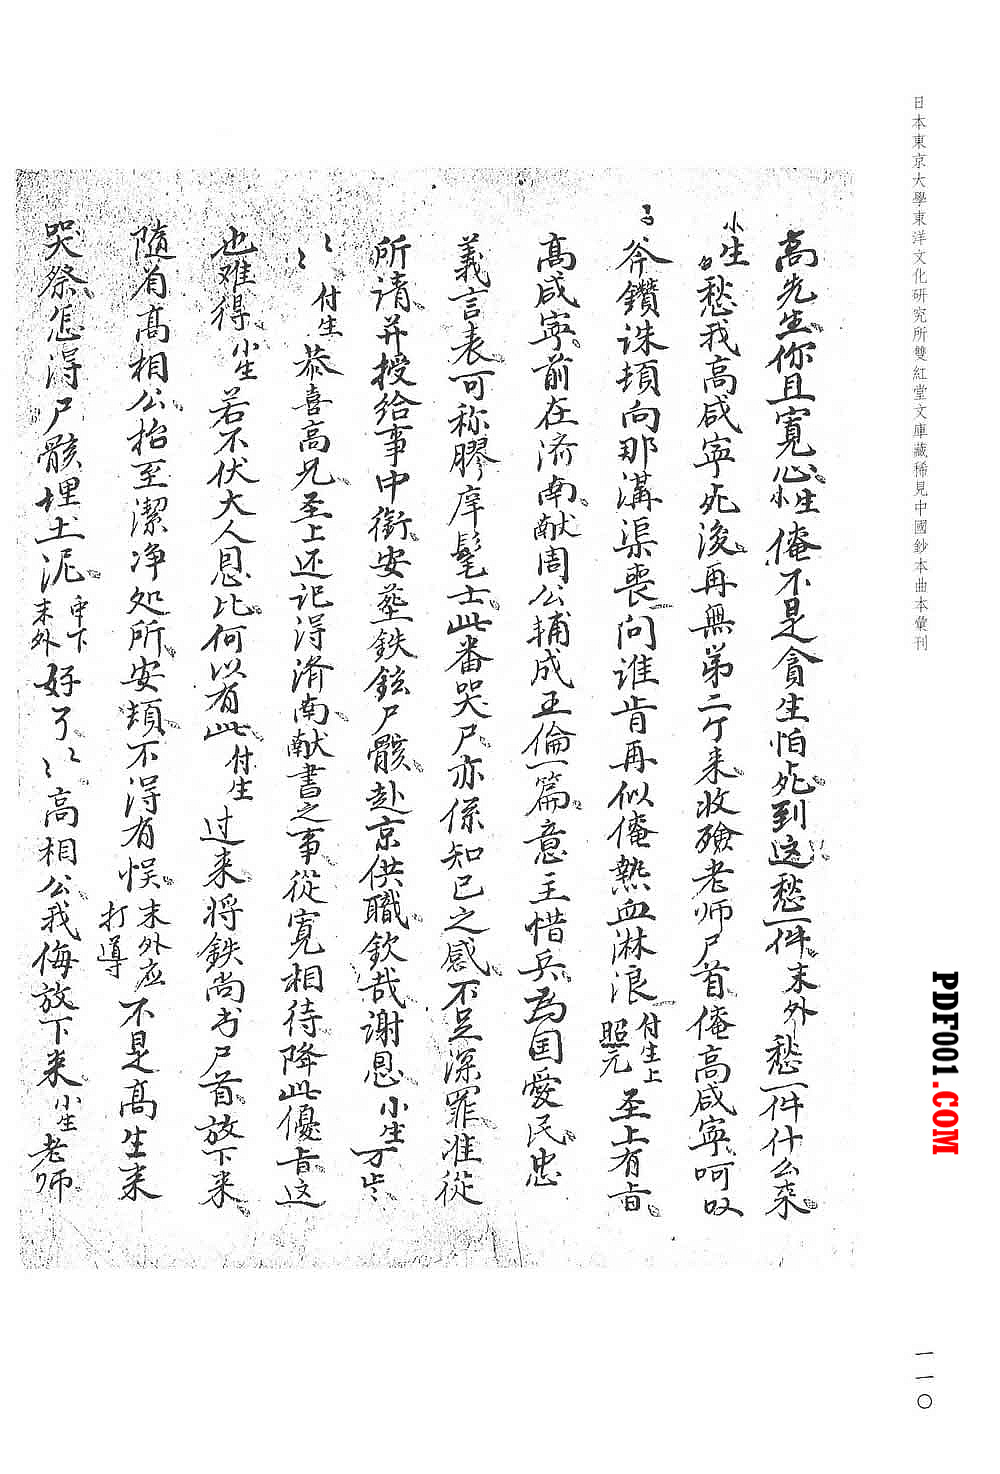 日本東京大學東洋文化研究所雙紅堂文庫藏稀見中國鈔本曲本彙刊
高先生你且寬心小生俺不是貪生怕死到这愁一件末外愁一件什么来
小生白愁我高咸寕死後再無第二个来收殮老师尸首俺高咸寕呵叹
斧鑽诛頚向那溝渠喪一问谁肯再似俺熱血淋浪一付生上照元圣上有㫖
高咸寕前在济南献周公辅成王倫一篇意主惜兵為国愛民忠
義言表可称膠庠髦士此番哭尸亦係知已之感不足深罪准從
所请并授给事中銜安塟鉄鉉尸骸赴京供職欽哉谢恩小生万岁
付生恭喜高兄圣上还记得济南献書之事從寛相待降此優㫖这
也难得小生若不伏大人恩比何以有此付生过来将鉄尚书尸首放下来
隨着高相公抬至潔净处所安頓不得有悞末外应打導不是高生来
哭祭怎得尸骸埋土泥申下末外好了高相公我侮放下来小生老师
一一〇
PDF001.COM